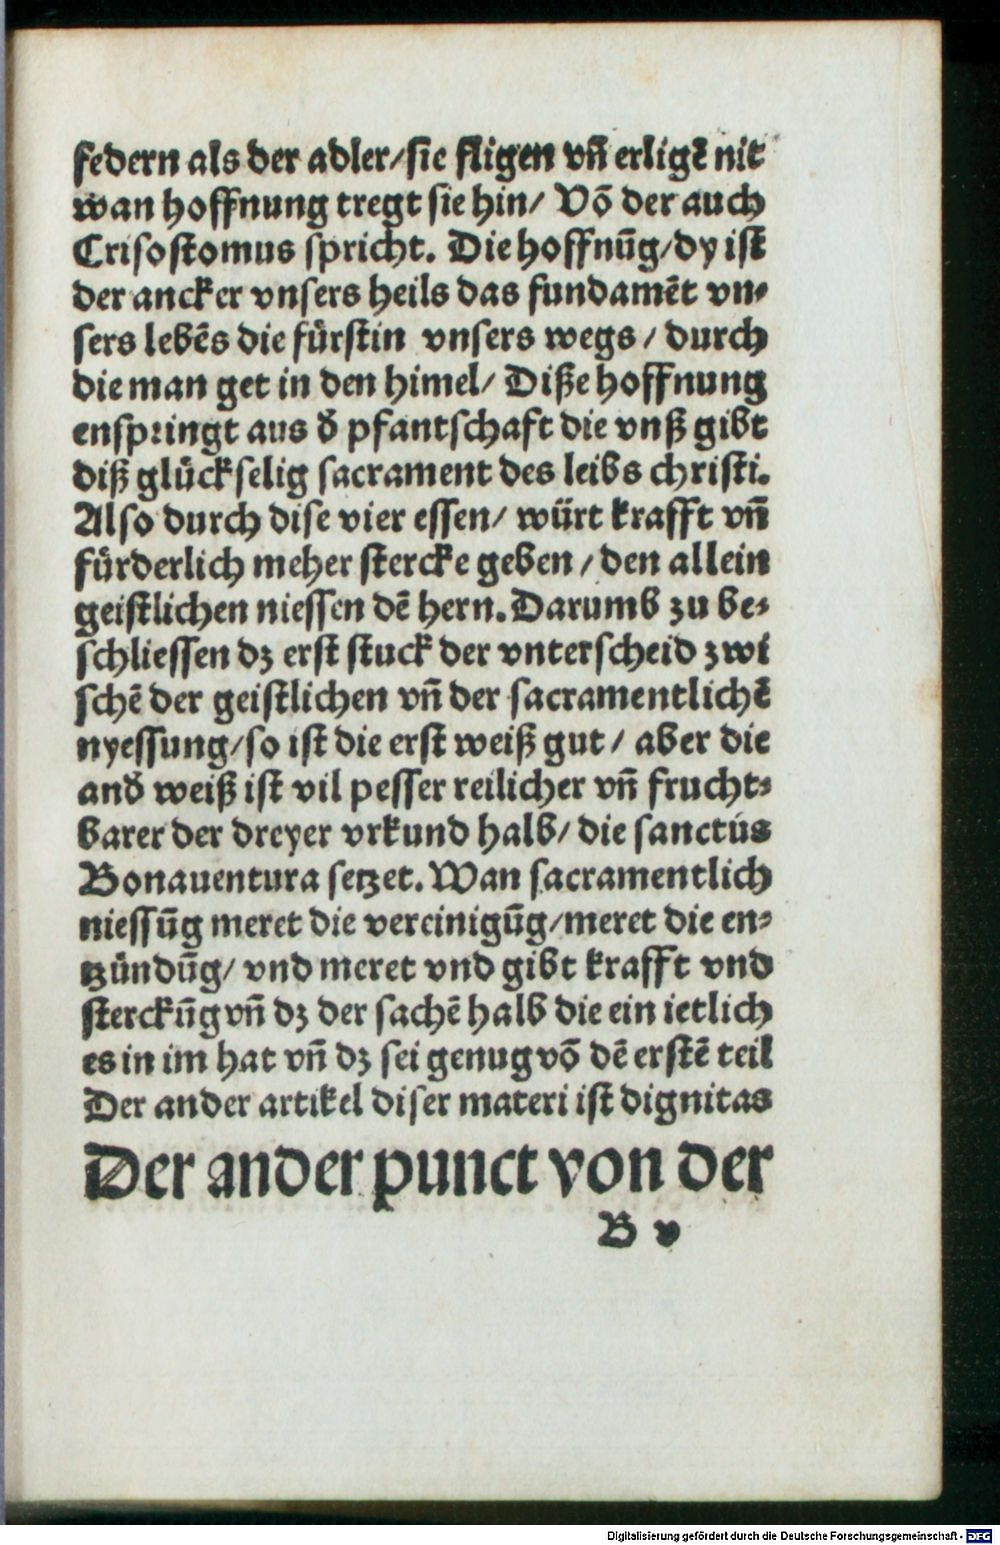 federn als der adler/sie fligen vn̄ erligē nit
wan hoffnung tregt sie hin/ Vō der auch
Crisostomus spricht. Die hoffnūg/dy ist
der ancker vnsers heils das fundamēt vn⸗
sers lebēs die fürstin vnsers wegs / durch
die man get in den himel/ Diße hoffnung
enspringt aus d̄ pfantschaft die vnß gibt
diß glückselig sacrament des leibs christi.
Also durch dise vier essen/ würt krafft vn̄
fürderlich meher stercke geben / den allein
geistlichen niessen dē hern. Darumb zu be⸗
schliessen dz erst stuck der vnterscheid zwi
schē der geistlichen vn̄ der sacramentlichē
nyessung/so ist die erst weiß gut / aber die
and̄ weiß ist vil pesser reilicher vn̄ frucht⸗
barer der dreyer vrkund halb/ die sanctus
Bonauentura setzet. Wan sacramentlich
niessūg meret die vereinigūg/meret die en⸗
tzündūg/ vnd meret vnd gibt krafft vnd
sterckūg vn̄ dz der sachē halb die ein ietlich
es in im hat vn̄ dz sei genug vō dē erstē teil
Der ander artikel diser materi ist dignitas
Der ander punct von der
B v
Digitalisierung gefördert durch die Deutsche Forschungsgemeinschaft - DFG